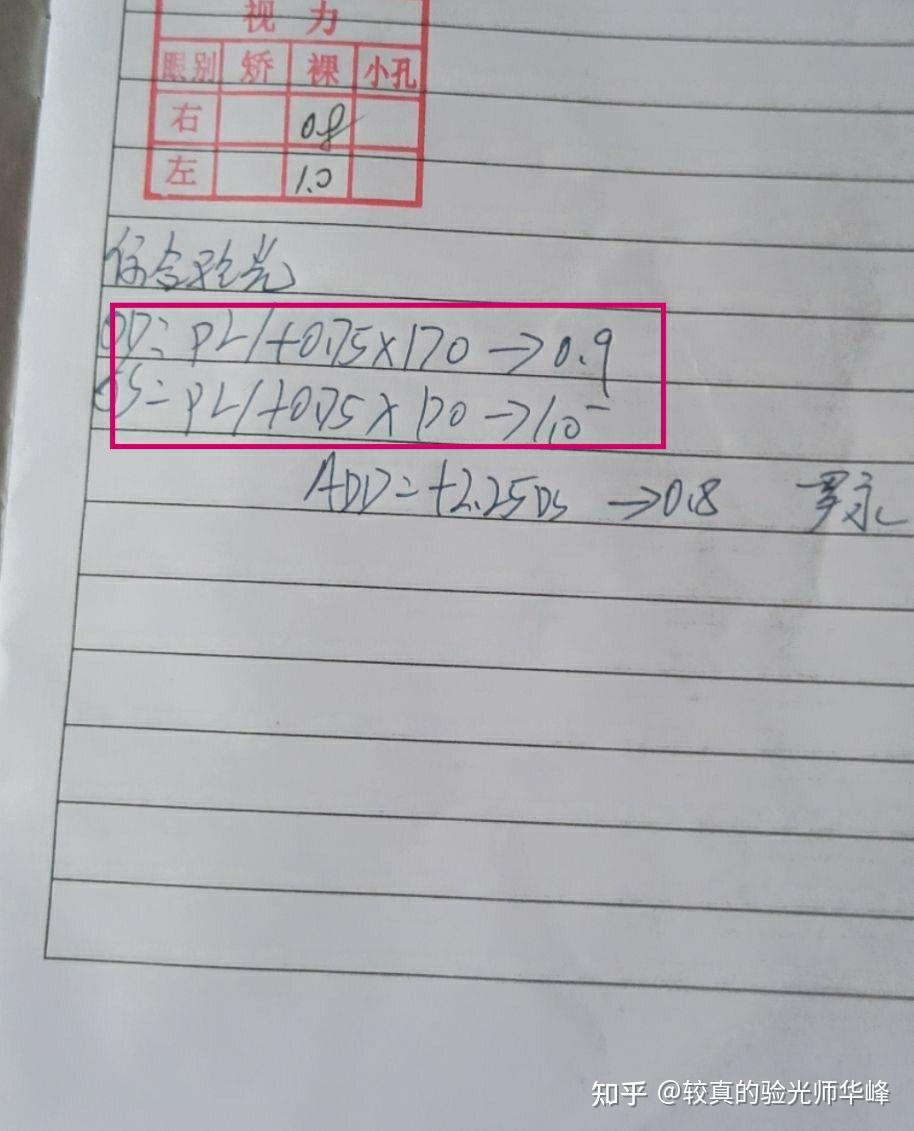 视 力
眼别 矫 裸 小孔
右 0.8
左 1.0
综合验光
OD: PL/+0.75×170 → 0.9
OS: PL/+0.75×170 → 1.0⁻
ADD=+2.25DS → 0.8
知乎 @较真的验光师华峰